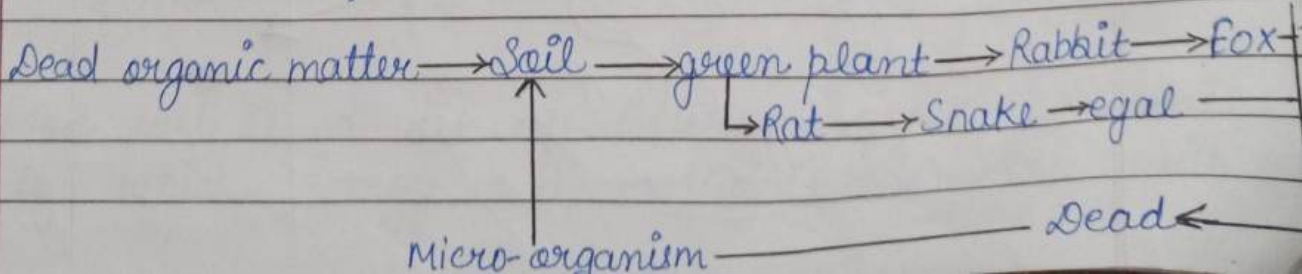 Dead organic matter → Soil → green plant → Rabbit → Fox
→ Rat → Snake → egal
Dead
Micro-organism